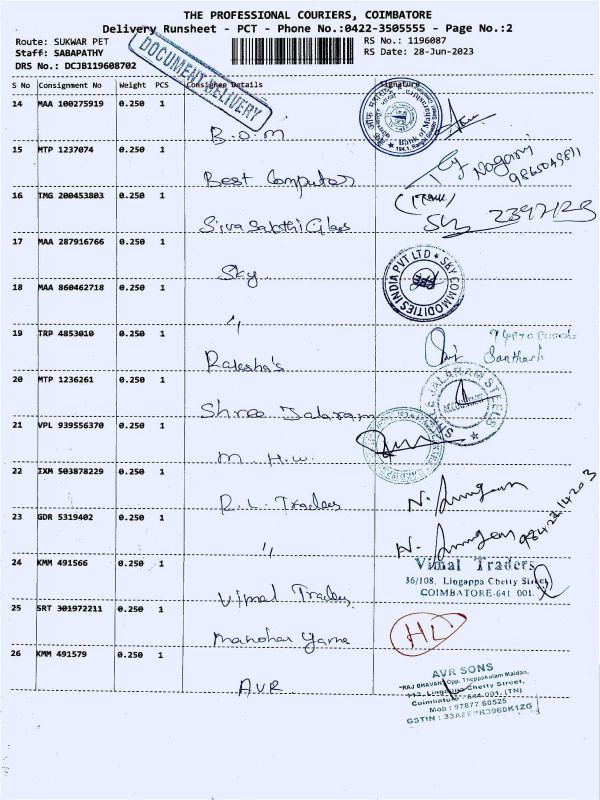 THE PROFESSIONAL COURIERS, COIMBATORE
Delivery Runsheet - PCT - Phone No.:0422-3505555 - Page No.:2
Route: SUKWAR PET
RS No.: 1196087
Staff: SABAPATHY
RS Date: 28-Jun-2023
DRS No.: DCJB119608702
DOCUMENT DELIVERY
S No Consignment No Weight PCS Consignee Details Signature
14 MAA 100275919 0.250 1
B.O.M
15 MTP 1237074 0.250 1
Best Computer
16 IMG 200453803 0.250 1
Siva Sakthi Glass
17 MAA 287916766 0.250 1
Sky
SKY COMMODITIES INDIA PVT LTD
18 MAA 860462718 0.250 1
"
19 TRP 4853010 0.250 1
Rakesha's
Santhosh
20 MTP 1236261 0.250 1
Shree Jalaram
SHREE JALARAM STEELS
21 VPL 939556370 0.250 1
M.H.W.
22 IXM 503878229 0.250 1
R.L. Traders
23 GDR 5319402 0.250 1
"
24 KMM 491566 0.250 1
Vimal Traders
Vimal Traders
36/108, Lingappa Chetty Street
COIMBATORE-641 001.
25 SRT 301972211 0.250 1
Manohar Yarne
HL
26 KMM 491579 0.250 1
AVR
AVR SONS
"RAJ BHAVAN" Opp. Theppakulam Maidan,
Chetty Street,
Coimbatore - 641 001. (TN)
Mob : 97877 60525